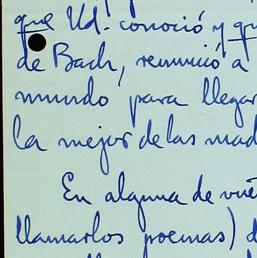 que Ud. conoció y qu
de Bach, renunció a
mundo para llegar
la mejor de las mad
En alguna de vue
llamarlos poemas) d